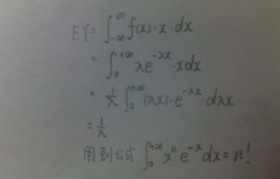 EY = ∫_{-∞}^{+∞} f(x)·x·dx
= ∫_0^{+∞} λe^{-λx}·xdx
= 1/λ ∫_0^{+∞} (λx)·e^{-λx}·dλx
= 1/λ
用到公式 ∫_0^{+∞} x^n e^{-x} dx = n!